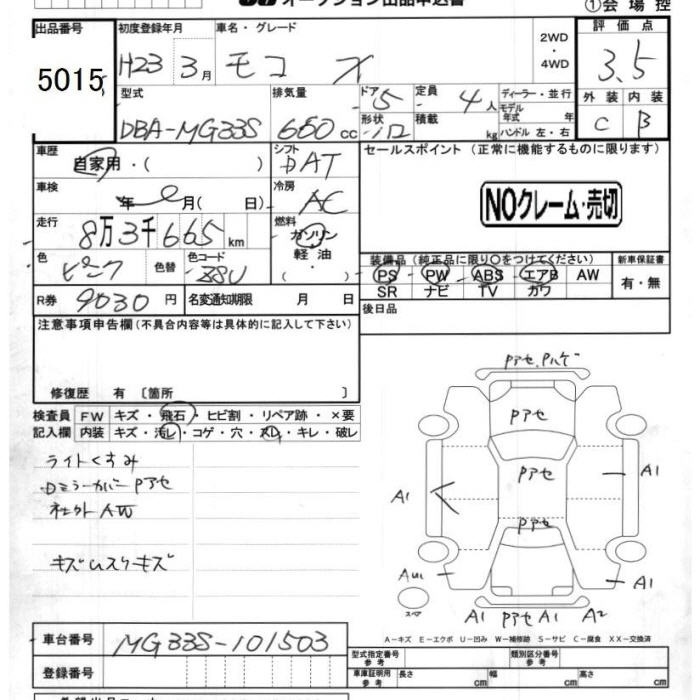 オークション出品申込書
①会場控
出品番号 5015
初度登録年月 H23 3月
車名・グレード モコ X
2WD・4WD
評価点 3.5
型式 DBA-MG33S
排気量 660cc
ドア 5 形状
定員 4人 積載 kg
ディーラー・並行
モデル年式 年式
ハンドル 左・右
外装 C 内装 B
車歴 自家用・( )
シフト DAT
セールスポイント (正常に機能するものに限ります)
NOクレーム・売切
車検 年 月( 日)
冷房 AC
走行 8万3千665km
燃料 ガソリン 軽油 ・( )
装備品 (純正品に限り○をつけてください)
PS PW ABS エアB AW
SR ナビ TV カワ
新車保証書 有・無
色 ピンク 色替
色コード
R券 9030円
名変通知期限 月 日
後日品
注意事項申告欄 (不具合内容等は具体的に記入して下さい)
修復歴 有 〔箇所 〕
検査員記入欄
FW キズ・飛石・ヒビ割・リペア跡・×要
内装 キズ・汚レ・コゲ・穴・スレ・キレ・破レ
ライトくすみ
Dミラーカバー Pアセ
社外AW
キズ ムスウ キズ
Pアセ、Pハゲ
Pアセ
Pアセ
Pアセ
A1
A1
スペア
A1 Pアセ A1 A2
A1
A-キズ E-エクボ U-凹み W-補修跡 S-サビ C-腐食 XX-交換済
車台番号 MG33S-101503
登録番号
型式指定番号 参考
類別区分番号 参考
車庫証明用 参考 長さ cm 幅 cm 高さ cm